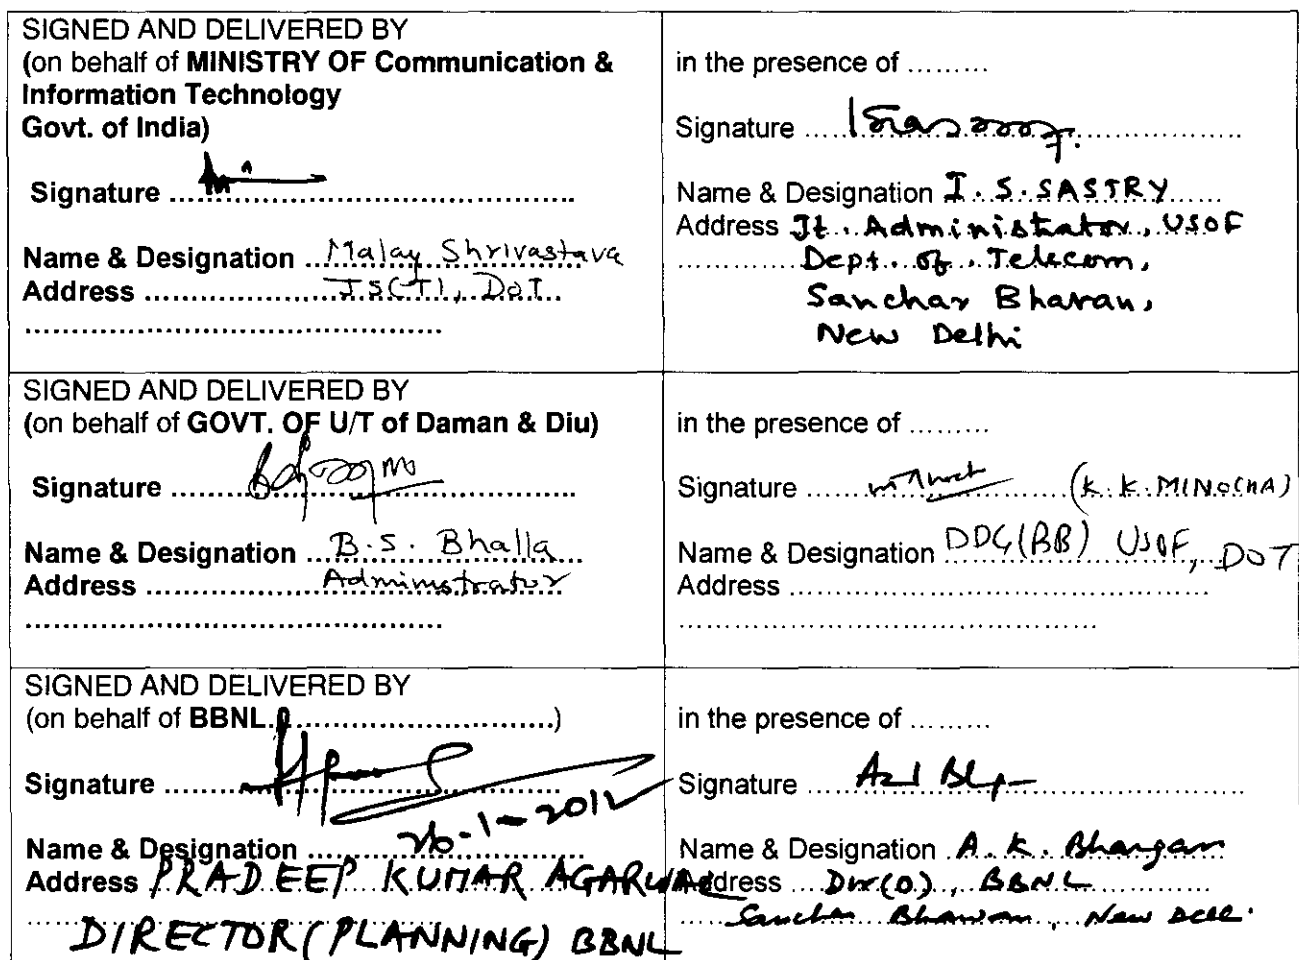 SIGNED AND DELIVERED BY
(on behalf of MINISTRY OF Communication &
Information Technology
Govt. of India)
Signature ..........
Name & Designation Malay Shrivastava
Address .......... JS(T), DoT
..........
in the presence of .........
Signature ..........
Name & Designation I. S. SASTRY
Address Jt. Administrator, USOF
Dept. of Telecom,
Sanchar Bhavan,
New Delhi
SIGNED AND DELIVERED BY
(on behalf of GOVT. OF U/T of Daman & Diu)
Signature ..........
Name & Designation B.S. Bhalla
Address .......... Administrator
..........
in the presence of .........
Signature .......... (K. K. MINOCHA)
Name & Designation DDG(BB) USOF, DOT
Address ..........
..........
SIGNED AND DELIVERED BY
(on behalf of BBNL ..........)
Signature ..........
Name & Designation .......... 26-1-2012
Address PRADEEP KUMAR AGARWAL
DIRECTOR (PLANNING) BBNL
in the presence of .........
Signature ..........
Name & Designation A. K. Bhargav
Address ... Dir(O), BBNL
Sanchar Bhawan, New Delhi.